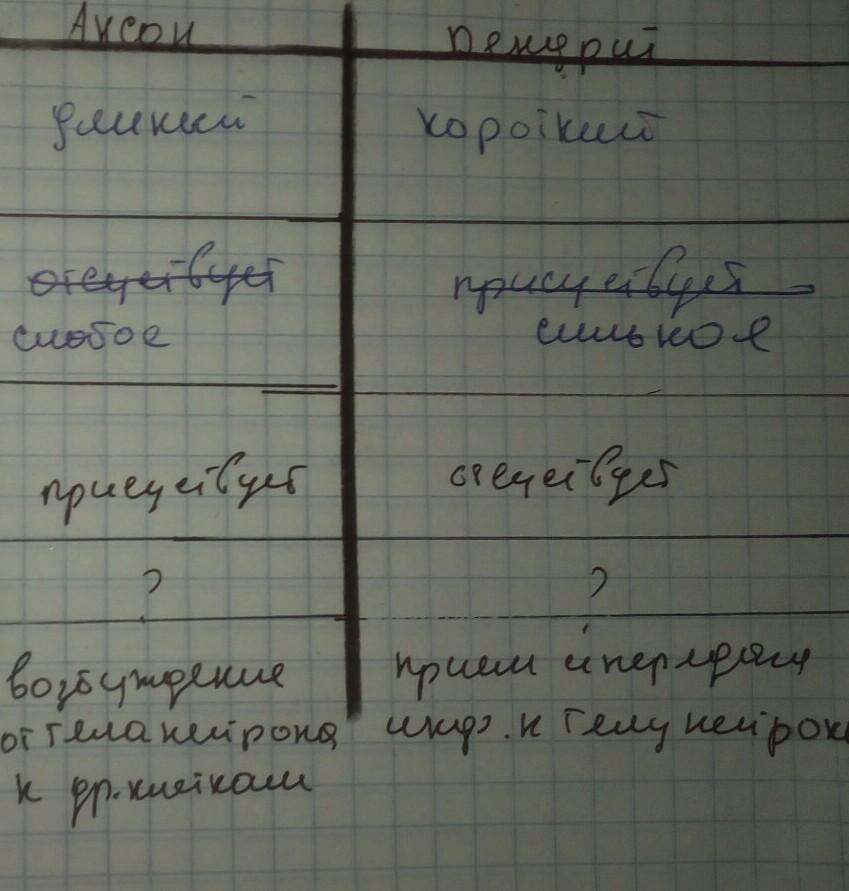 Аксон
Дендрит
длинный
короткий
отсутствует
слабое
присутствует
сильное
присутствует
отсутствует
?
?
возбуждение
от тела нейрона
к др. клеткам
прием и передачи
инф. к телу нейрон